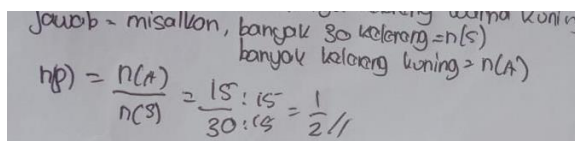 warna kuning
Jawab = misalkon, banyak 30 kelereng = n(S)
banyak kelereng kuning = n(A)
n(p) = n(A)/n(S) = 15 : 15 / 30 : 15 = 1/2 //